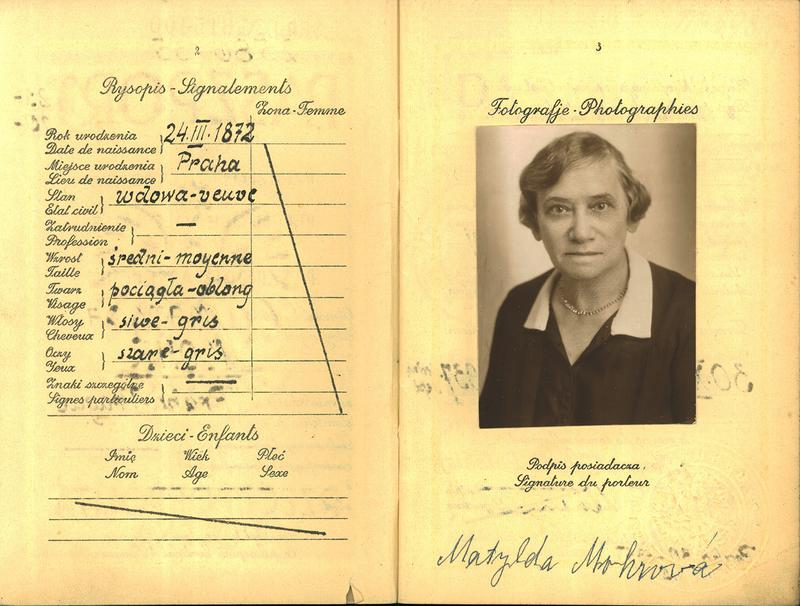 2
Rysopis - Signalements
Żona - Femme
Rok urodzenia
Date de naissance
24.III.1872
Miejsce urodzenia
Lieu de naissance
Praha
Stan
Etat civil
wdowa - veuve
Zatrudnienie
Profession
—
Wzrost
Taille
średni - moyenne
Twarz
Visage
pociągła - oblong
Włosy
Cheveux
siwe - gris
Oczy
Yeux
szare - gris
Znaki szczególne
Signes particuliers
—
Dzieci - Enfants
Imię Wiek Płeć
Nom Age Sexe
3
Fotografje - Photographies
Podpis posiadacza,
Signature du porteur
Matylda Mohrová